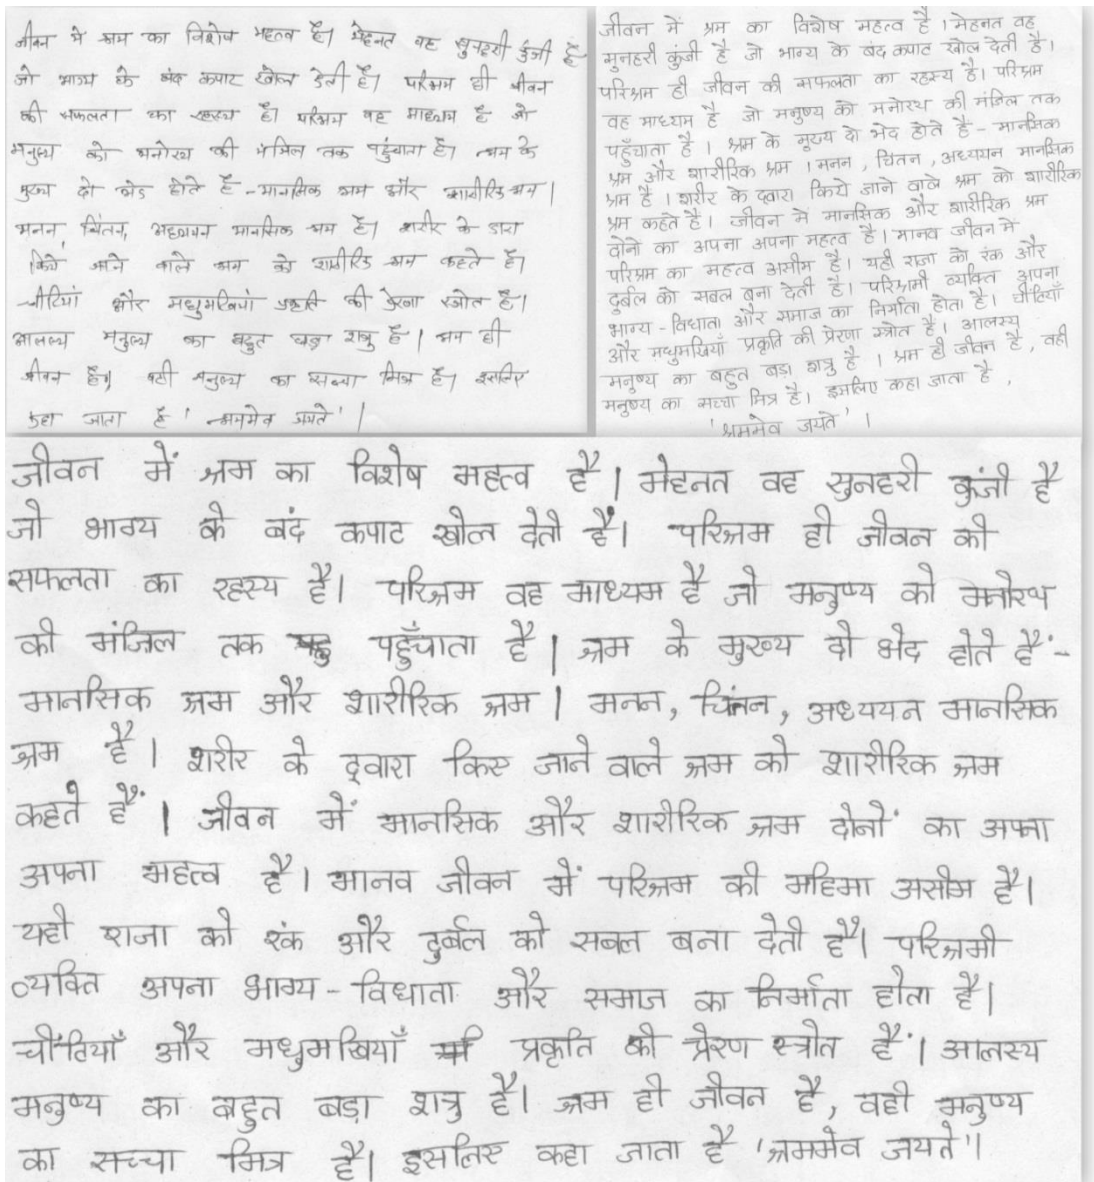 जीवन मे श्रम का विशेष महत्व है। मेहनत वह सुनहरी कुंजी है
जो भाग्य के बंद कपाट खोल देती है। परिश्रम ही जीवन
की सफलता का रहस्य है। परिश्रम वह माध्यम है जो
मनुष्य को मनोरथ की मंजिल तक पहुंचाता है। श्रम के
मुख्य दो भेद होते है - मानसिक श्रम और शारीरिक श्रम।
मनन, चिंतन, अध्ययन मानसिक श्रम है। शरीर के द्वारा
किये जाने वाले श्रम को शारीरिक श्रम कहते है।
चीटियां और मधुमखियां प्रकृति की प्रेरणा स्त्रोत है।
आलस्य मनुष्य का बहुत बड़ा शत्रु है। श्रम ही
जीवन है। वही मनुष्य का सच्चा मित्र है। इसलिए
कहा जाता है 'श्रममेव जयते'।
जीवन में श्रम का विशेष महत्व है। मेहनत वह
सुनहरी कुंजी है जो भाग्य के बंद कपाट खोल देती है।
परिश्रम ही जीवन की सफलता का रहस्य है। परिश्रम
वह माध्यम है जो मनुष्य को मनोरथ की मंजिल तक
पहुँचाता है। श्रम के मुख्य दो भेद होते है - मानसिक
श्रम और शारीरिक श्रम। मनन, चिंतन, अध्ययन मानसिक
श्रम है। शरीर के द्वारा किये जाने वाले श्रम को शारीरिक
श्रम कहते है। जीवन में मानसिक और शारीरिक श्रम
दोनो का अपना अपना महत्व है। मानव जीवन में
परिश्रम का महत्व असीम है। यही राजा को रंक और
दुर्बल को सबल बना देती है। परिश्रामी व्यक्ति अपना
भाग्य - विधाता और समाज का निर्माता होता है। चींतियाँ
और मधुमखियाँ प्रकृति की प्रेरणा स्त्रोत है। आलस्य
मनुष्य का बहुत बड़ा शत्रु है। श्रम ही जीवन है, वही
मनुष्य का सच्चा मित्र है। इसलिए कहा जाता है,
'श्रममेव जयते'।
जीवन में श्रम का विशेष महत्व है। मेहनत वह सुनहरी कुंजी है
जो भाग्य के बंद कपाट खोल देती हैं। परिश्रम ही जीवन की
सफलता का रहस्य है। परिश्रम वह माध्यम है जो मनुष्य को मनोरथ
की मंजिल तक पहुँचाता है। श्रम के मुख्य दो भेद होते हैं -
मानसिक श्रम और शारीरिक श्रम। मनन, चिंतन, अध्ययन मानसिक
श्रम है। शरीर के द्वारा किए जाने वाले श्रम को शारीरिक श्रम
कहते हैं। जीवन में मानसिक और शारीरिक श्रम दोनों का अपना
अपना महत्व है। मानव जीवन में परिश्रम की महिमा असीम है।
यही राजा को रंक और दुर्बल को सबल बना देती है। परिश्रमी
व्यक्ति अपना भाग्य - विधाता और समाज का निर्माता होता है।
चींतियाँ और मधुमखियाँ प्रकृति की प्रेरण स्त्रोत हैं। आलस्य
मनुष्य का बहुत बड़ा शत्रु है। श्रम ही जीवन है, वही मनुष्य
का सच्चा मित्र है। इसलिए कहा जाता है 'श्रममेव जयते'।